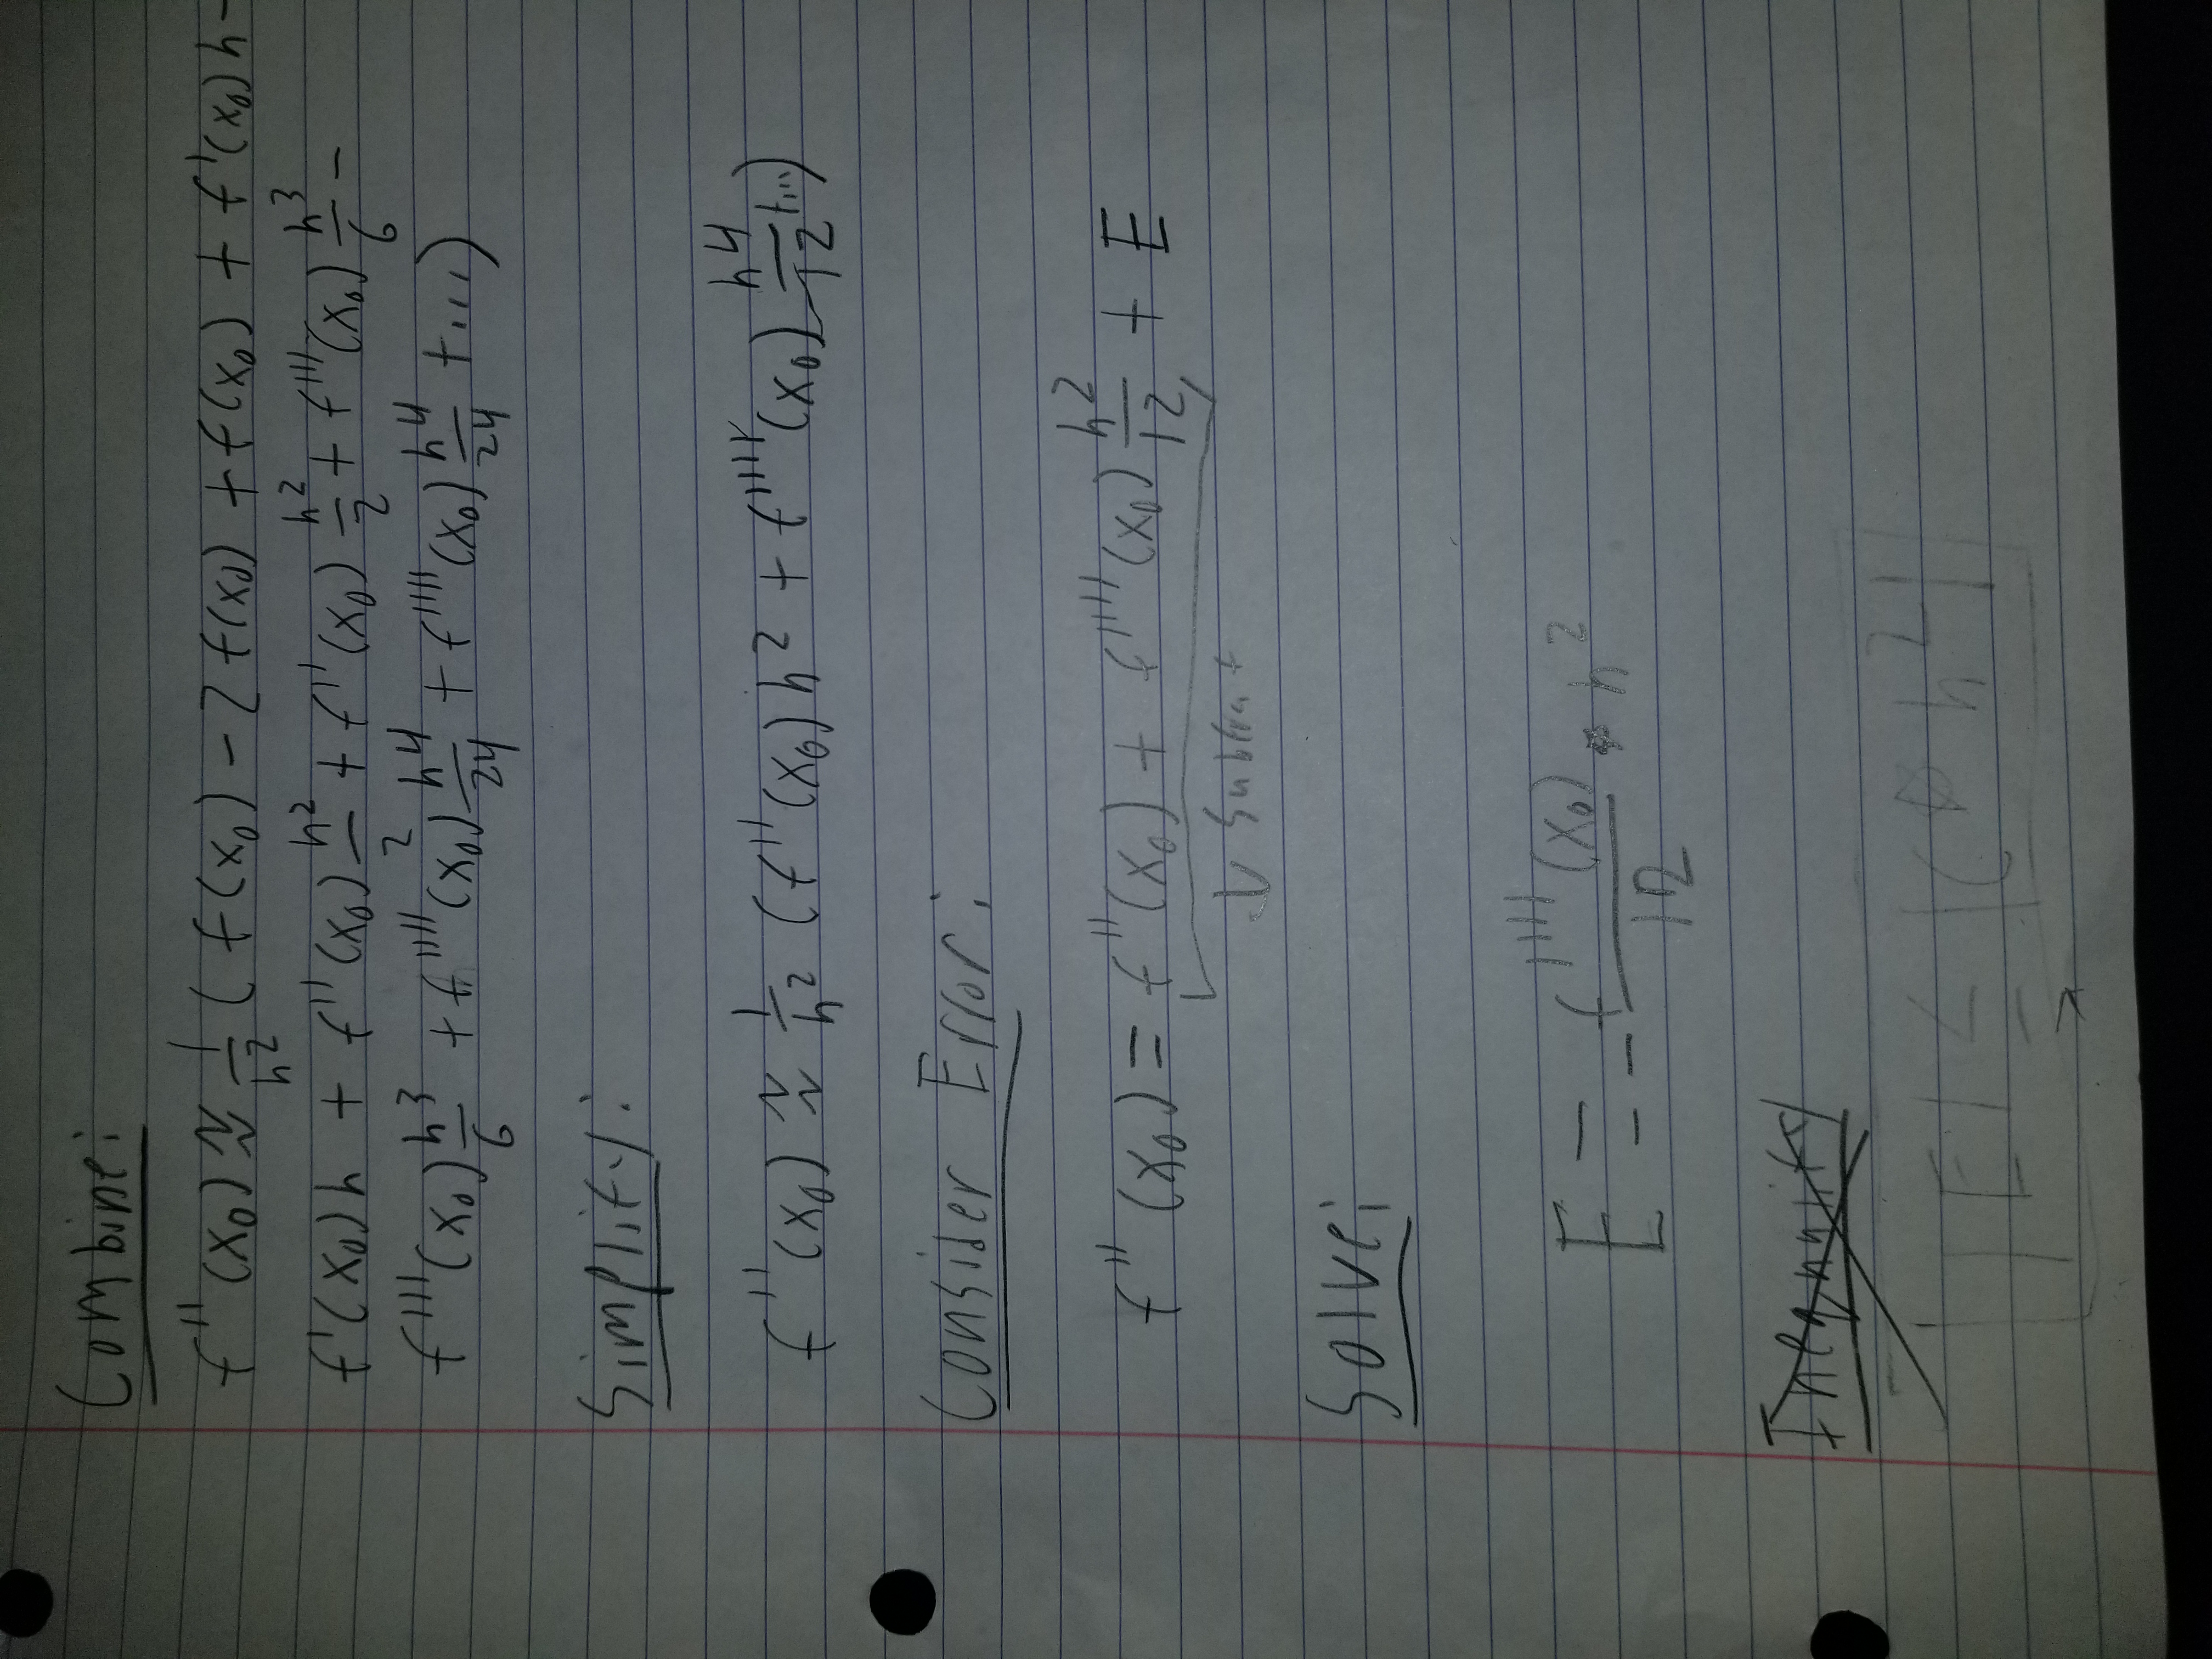 Combine:
f''(x₀) ≈ 1/h² ( f(x₀) - 2f(x₀) + f(x₀) + f'(x₀)h -
f'(x₀)h + f''(x₀) h²/2 + f''(x₀) h²/2 + f'''(x₀) h³/6 -
f'''(x₀) h³/6 + f''''(x₀) h⁴/24 + f''''(x₀) h⁴/24 + ...)
Simplify:
f''(x₀) ≈ 1/h² (f''(x₀)h² + f''''(x₀) h⁴/12 + ...)
Consider Error:
f''(x₀) = f''(x₀) + f''''(x₀) h²/12 + E
↓ Subtract
Solve:
E = - f''''(x₀)/12 * h²
Inequality
|E| ≤ |C * h²|